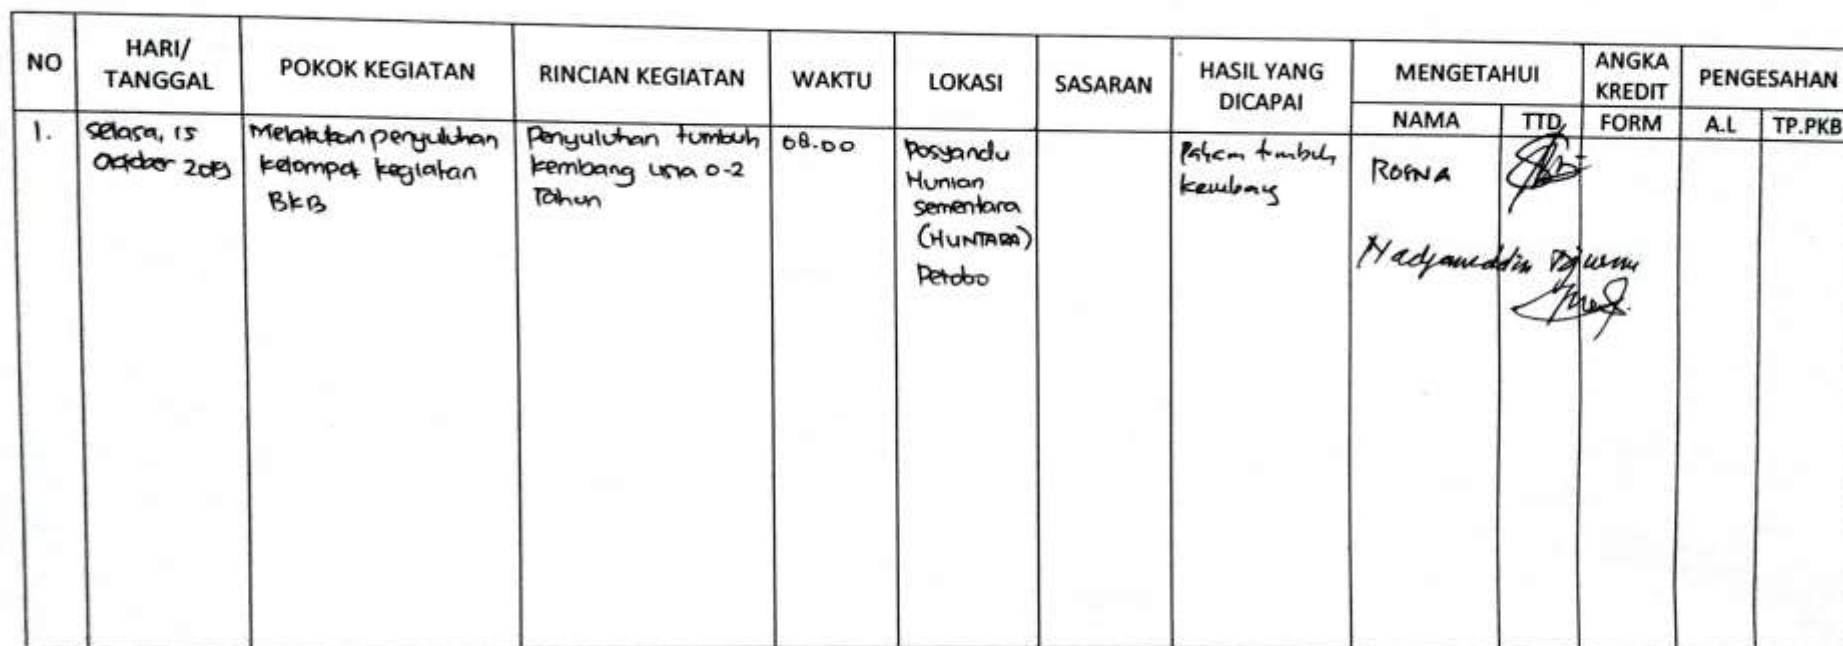 NO
HARI/
TANGGAL
POKOK KEGIATAN
RINCIAN KEGIATAN
WAKTU
LOKASI
SASARAN
HASIL YANG
DICAPAI
MENGETAHUI
NAMA
TTD
ANGKA
KREDIT
FORM
PENGESAHAN
A.L
TP.PKB
1.
Selasa, 15
Oktober 2019
Melakukan penyuluhan
kelompok kegiatan
BKB
Penyuluhan tumbuh
kembang usia 0-2
Tahun
08.00
Posyandu
Hunian
sementara
(HUNTARA)
Petobo
Paham tumbuh
kembang
ROFNA